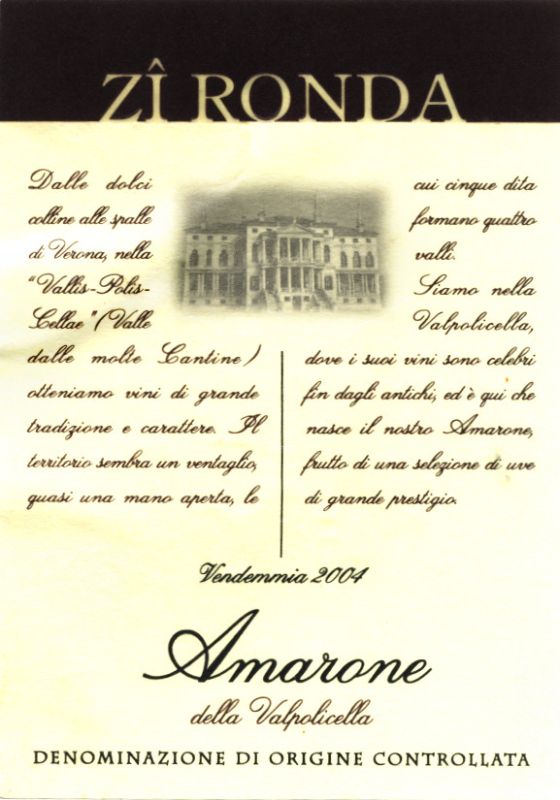 ZÎ RONDA
Dalle dolci
colline alle spalle
di Verona, nella
"Vallis-Polis-
Cellae" (Valle
dalle molte Cantine)
otteniamo vini di grande
tradizione e carattere. Il
territorio sembra un ventaglio,
quasi una mano aperta, le
cui cinque dita
formano quattro
valli.
Siamo nella
Valpolicella,
dove i suoi vini sono celebri
fin dagli antichi, ed è qui che
nasce il nostro Amarone,
frutto di una selezione di uve
di grande prestigio.
Vendemmia 2004
Amarone
della Valpolicella
DENOMINAZIONE DI ORIGINE CONTROLLATA